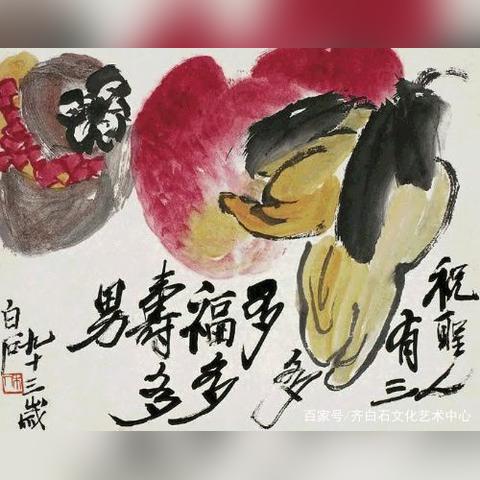 祝聖人
有三
多
多
福多
壽多
男
九十三歲
白石
百家号/齐白石文化艺术中心